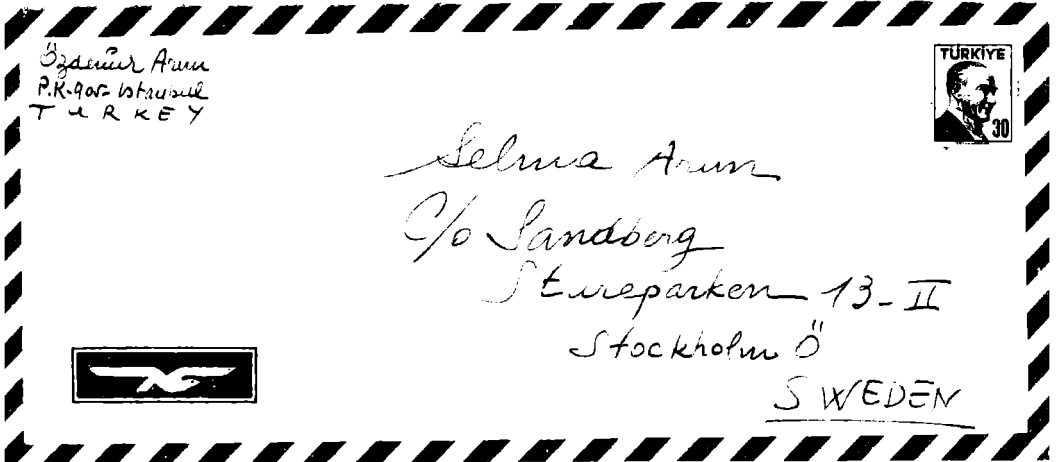 Özdemir Arun
P.K. 905 - Istanbul
TURKEY
TÜRKİYE
30
Selma Arun
C/o Sandberg
Stureparken 13-II
Stockholm Ö
SWEDEN